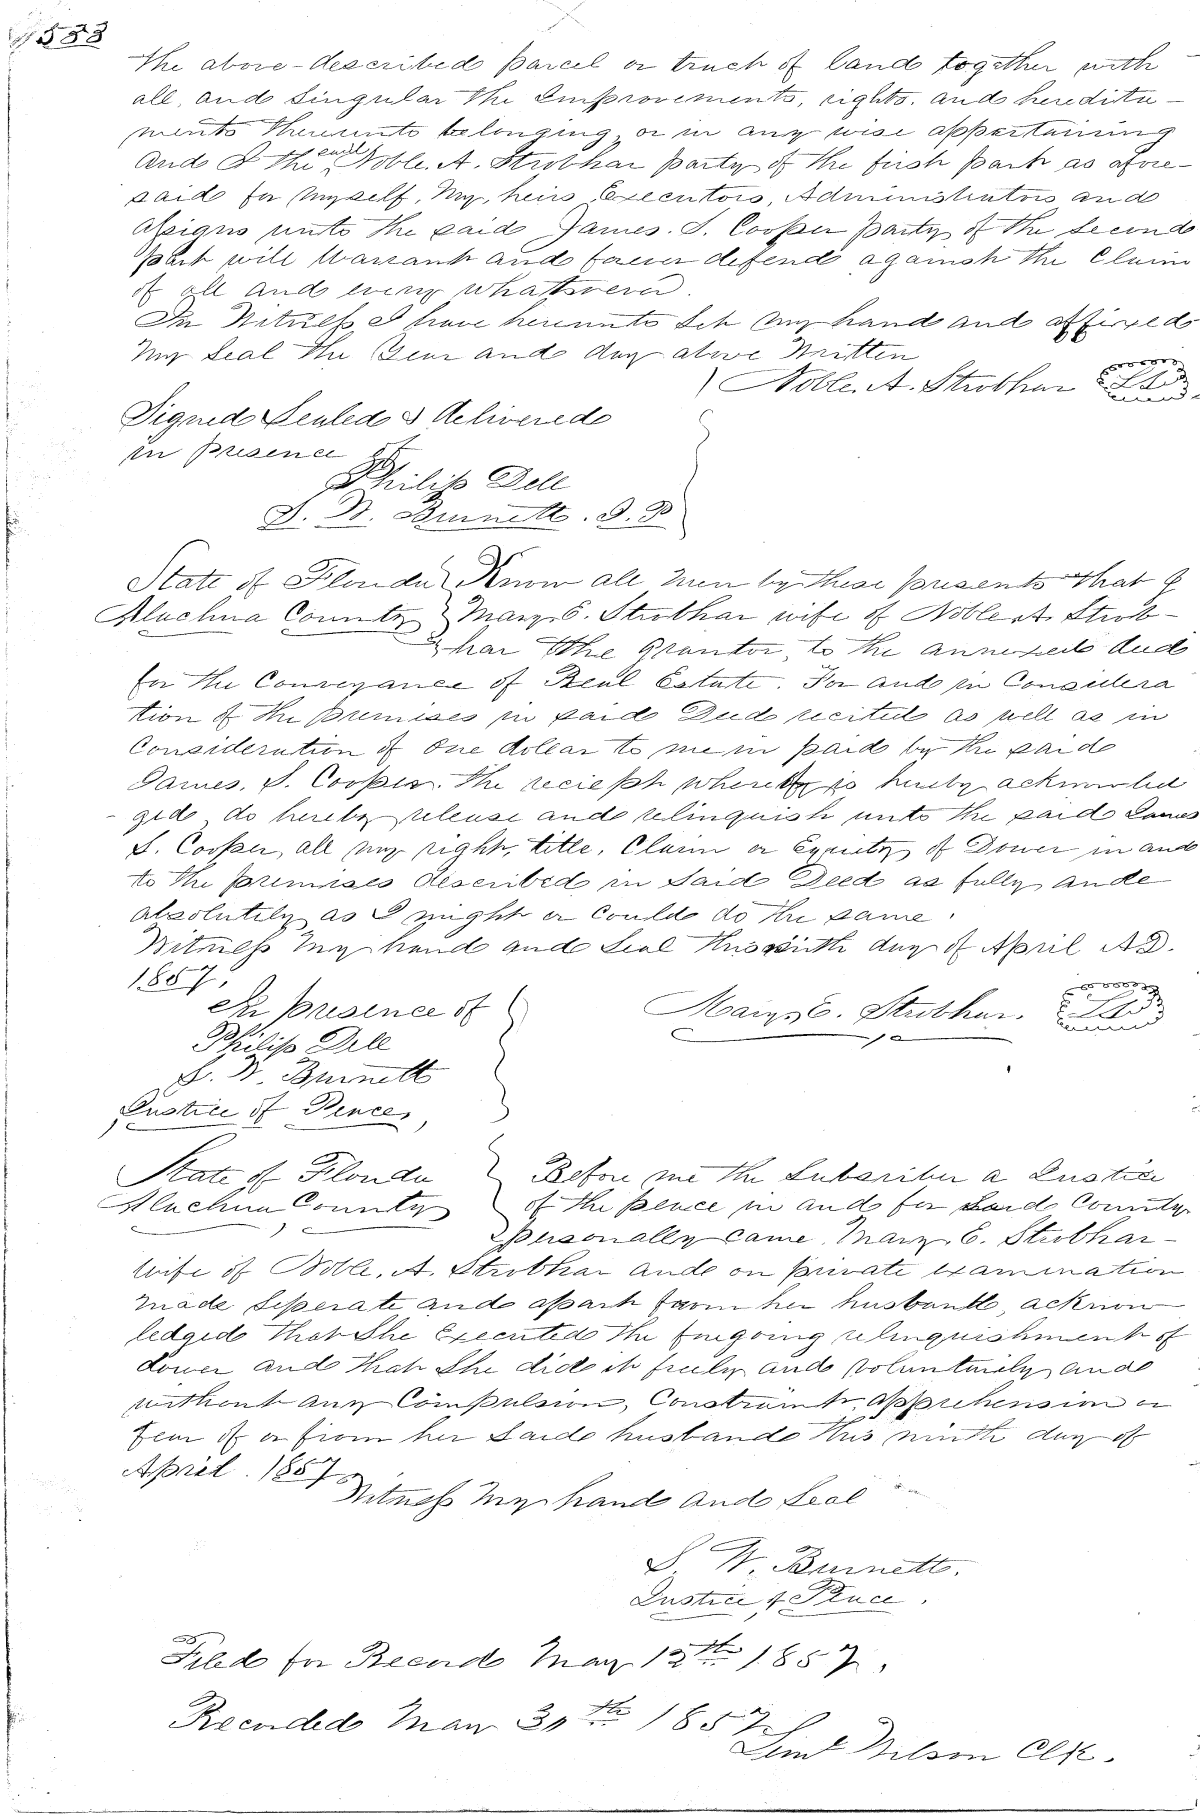 the above-described parcel or track of land together with
all, and Singular the Improvements, rights, and heredita-
ments thereunto belonging, or in any wise appertaining
And I the said Noble. A. Strobhar party of the first part as afore-
said for Myself, My, heirs Executors, Administrators and
Assigns unto the said James. S. Cooper party of the Second
part will Warrant and forever defend against the Claim
of all and every whatsoever.
In Witness I have hereunto Set my hand and affixed
my Seal the Year and day above Written
Noble. A. Strobhar LS
Signed Sealed & delivered
in presence of
Philip Dell
S. W. Burnett. J. P
State of Florida Know all men by these presents that I
Alachua County Mary E. Strobhar wife of Noble A. Strob-
har the Grantor, to the annexed deed
for the Conveyance of Real Estate. For and in Considera
tion of the premises in said Deed recited as well as in
Consideration of One dollar to me in paid by the said
James. S. Cooper. the reciept whereof is hereby acknowled
ged, do hereby release and relinquish unto the said James
S. Cooper, all my right, title, Claim or Equity of Dower in and
to the premises described in Said Deed as fully and
absolutely as I might or Could do the same.
Witness my hand and Seal this ninth day of April AD.
1857.
In presence of
Mary E. Strobhar. LS
Philip Dell
S. W. Burnett
Justice of Peace,
State of Florida Before me the Subscriber a Justice
Alachua County of the peace in and for Said County
personally Came Mary E. Strobhar-
wife of Noble. A. Strobhar and on private examination
made Seperate and apart from her husband, acknow
ledged that She Executed the foregoing relinquishment of
dower and that She did it freely and voluntarily and
without any Compulsion, Constraint, apprehension or
fear of or from her Said husband this ninth day of
April. 1857
Witness My hand and Seal
S. W. Burnett.
Justice of Peace.
Filed for Record May 12th 1857.
Recorded May 30th 1857
Wilson Clk.